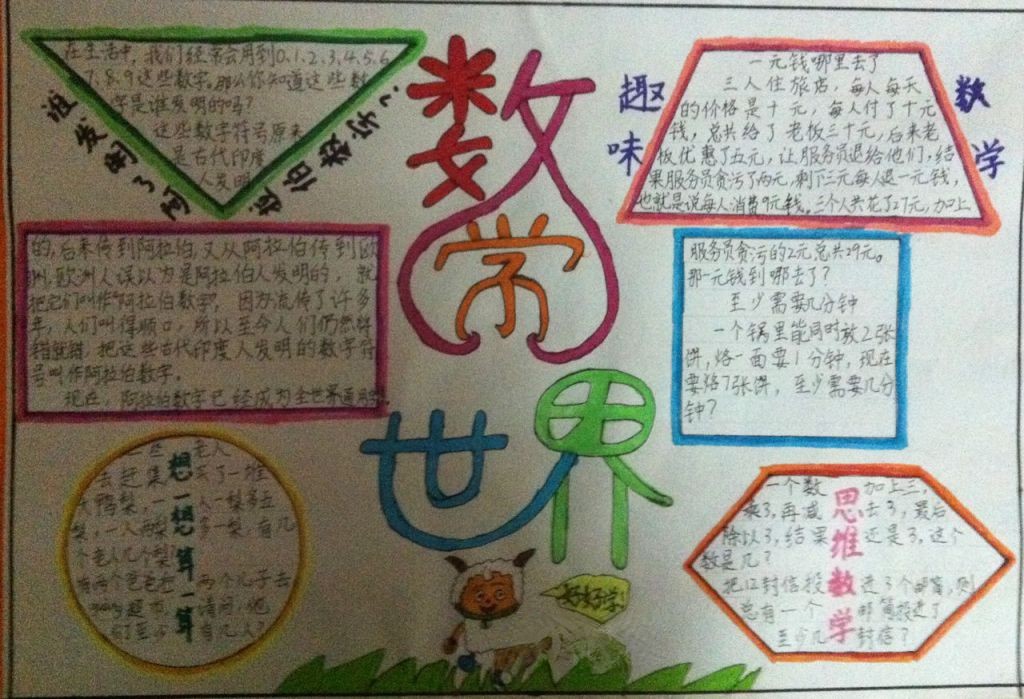 数学
世界
谁发明了阿拉伯数字?
在生活中,我们经常会用到0.1.2.3.4.5.6
7.8.9这些数字,那么你知道这些数
字是谁发明的吗?
这些数字符号原来
是古代印度
人发明
的,后来传到阿拉伯,又从阿拉伯传到欧
洲,欧洲人误以为是阿拉伯人发明的,就
把它们叫作"阿拉伯数字",因为流传了许多
年,人们叫得顺口,所以至今人们仍然将
错就错,把这些古代印度人发明的数字符
号叫作阿拉伯数字。
现在,阿拉伯数字已经成为全世界通用
趣味
数学
一元钱哪里去了
三人住旅店,每人每天
的价格是十元,每人付了十元
钱,总共给了老板三十元,后来老
板优惠了五元,让服务员退给他们,结
果服务员贪污了两元,剩下三元每人退一元钱,
也就是说每人消费9元钱。三个人共花了27元,加上
服务员贪污的2元总共29元。
那一元钱到哪去了?
至少需要几分钟
一个锅里能同时放2张
饼,烙一面要1分钟,现在
要烙7张饼,至少需要几分
钟?
想一想算一算
老人
去赶集买了一堆
大鸭梨,一人一梨多五
梨,一人两梨多一梨,有几
个老人几个梨?
有两个爸爸把两个儿子去
请问,他
们至少有几人?
思维数学
一个数加上三,
乘3,再减去3,最后
除以3,结果还是3,这个
数是几?
把12封信投进3个邮筒,则
总有一个邮筒投进了
至少几封信?
好好学!